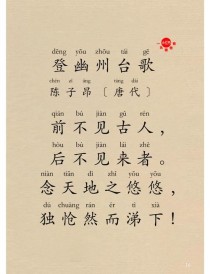 dēng yōu zhōu tái gē
登幽州台歌
chén zǐ áng táng dài
陈子昂〔唐代〕
qián bù jiàn gǔ rén
前不见古人，
hòu bù jiàn lái zhě
后不见来者。
niàn tiān dì zhī yōu yōu
念天地之悠悠，
dú chuàng rán ér tì xià
独怆然而涕下！